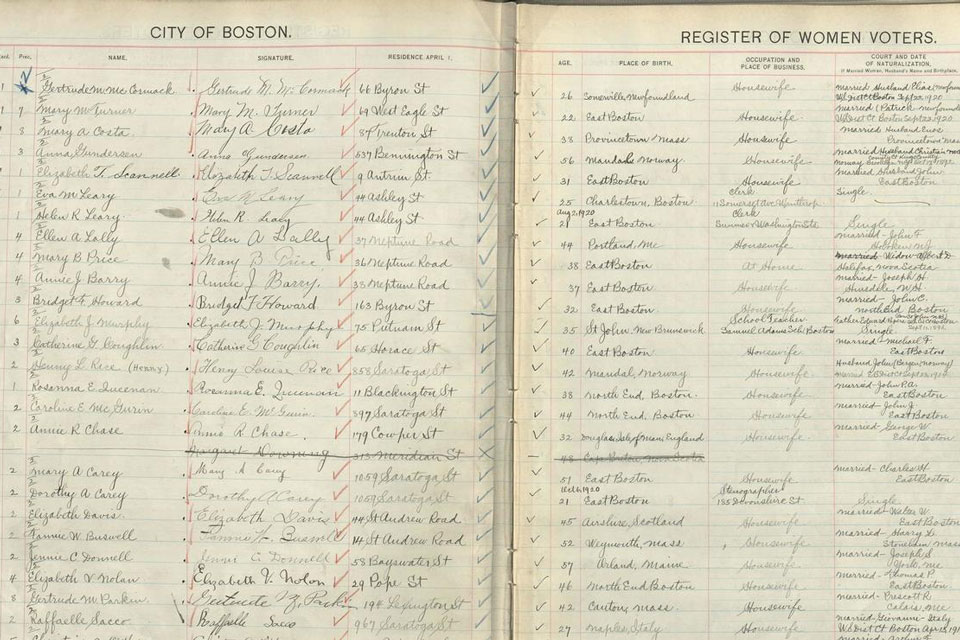 CITY OF BOSTON.
REGISTER OF WOMEN VOTERS.
Prec. NAME. SIGNATURE. RESIDENCE APRIL 1, AGE. PLACE OF BIRTH. OCCUPATION AND PLACE OF BUSINESS. COURT AND DATE OF NATURALIZATION.
If Married Women, Husband's Name and Birthplace.
Gertrude M. McCormack Gertrude M. McCormack 66 Byron St 26 Somerville, Newfoundland Housewife married Husband Elias
7 Mary M Turner Mary M. Thurner 69 West Eagle St 22 East Boston Housewife married (Patrick Newfoundland
U S Dist Ct Boston Sept 20, 1920
8 Mary A Costa Mary A Costa 87 Trenton St 38 Provincetown Mass Housewife married Husband Enos
Provincetown Mass
3 Anna Gundersen Anna Gundersen 537 Bennington St 56 Mandahl Norway Housewife married Husband Christian
1 Elizabeth T. Scannell Elizabeth T. Scannell 9 Antrim St 31 East Boston Housewife married Husband John
East Boston
1 Eva M Leary Eva M Leary 44 Ashley St 25 Charlestown, Boston Clerk Somerset Ave Winthrop Single
Aug 2, 1920
1 Helen R Leary Helen R Leary 44 Ashley St 21 East Boston Clerk Summer & Washington Sts Single
4 Ellen A Lally Ellen A Lally 37 Neptune Road 49 Portland, Me Housewife married - John F
Hoboken N.J
4 Mary B Price Mary B Price 36 Neptune Road 38 East Boston At Home married Widow Albert D
Halifax Nova Scotia
4 Annie J Barry Annie J Barry. 35 Neptune Road 37 East Boston Housewife married - Joseph H
Hinsdale, N.H
3 Bridget F. Howard Bridget F. Howard 163 Byron St 32 East Boston Housewife married - John C.
North End Boston
6 Elizabeth J. Murphy Elizabeth J. Murphy 75 Putnam St 35 St John New Brunswick School Teacher Samuel Adams Sch. Boston Single
3 Catherine G Coughlin Catherine G Coughlin 65 Horace St 40 East Boston Housewife married - Michael F
East Boston
2 Henny L. Rice (HENNY.) Henny Louise Rice 858 Saratoga St 42 Mandal, Norway Housewife Husband John (Bergen Norway)
1 Rosanna E. Queenan Roseanna E. Queenan 11 Blackington St 38 North End, Boston Housewife married - John P.A.
East Boston
2 Caroline E. McGurin Caroline E. McGurin 847 Saratoga St 44 North End, Boston Housewife married - John J.
East Boston
2 Annie R Chase Annie R Chase. 179 Cowper St 32 Douglas, Isle of Man, England Housewife married - George W
East Boston
Margaret Downing 313 Meridian St 48
2 Mary A Carey Mary A Carey 1059 Saratoga St 51 East Boston Housewife married - Charles H
East Boston
Oct 6, 1920
2 Dorothy A Carey Dorothy A Carey 1059 Saratoga St 21 East Boston Stenographer 185 Devonshire St Single
2 Elizabeth Davis Elizabeth Davis 44 St Andrew Road 45 Scotland Housewife married - Walter W.
East Boston
2 Fannie W. Buswell Fannie W. Buswell 114 St Andrew Road 52 Weymouth, Mass Housewife married - Harry
Stoneham Mass
2 Jennie C. Donnell Jennie C Donnell 58 Bayswater St 57 Housewife married - Joseph S
York, Me
4 Elizabeth V. Nolan Elizabeth V. Nolan 29 Pope St 46 North End Boston Housewife married - Thomas P.
East Boston
8 Gertrude M. Parkin 194 Lexington St 42 Canton, Mass. Housewife married - Prescott R
Calais, Me
2 Raffaelle Sacco Raffaelle Sacco 967 Saratoga St 27 Naples, Italy Housewife married - Giovanni - Italy